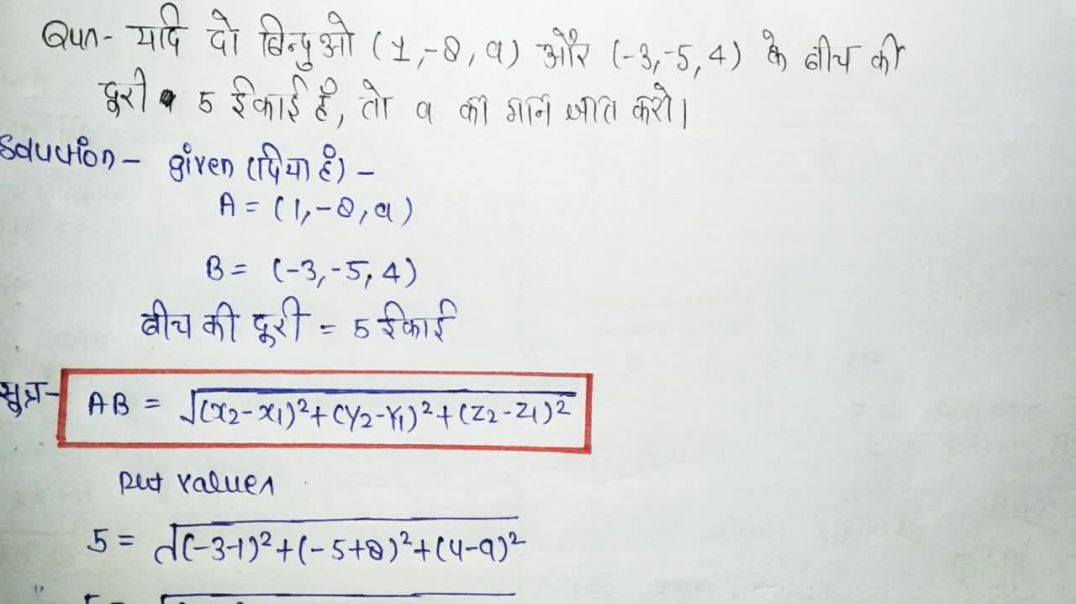 Qun- यदि दो बिन्दुओ (1,-8,a) और (-3,-5,4) के बीच की
दूरी 5 ईकाई है, तो a का मान ज्ञात करो।
Solution - given (दिया है) -
A = (1,-8,a)
B = (-3,-5,4)
बीच की दूरी = 5 ईकाई
सूत्र- AB = √(x₂-x₁)²+(y₂-y₁)²+(z₂-z₁)²
put values
5 = √(-3-1)²+(-5+8)²+(4-a)²